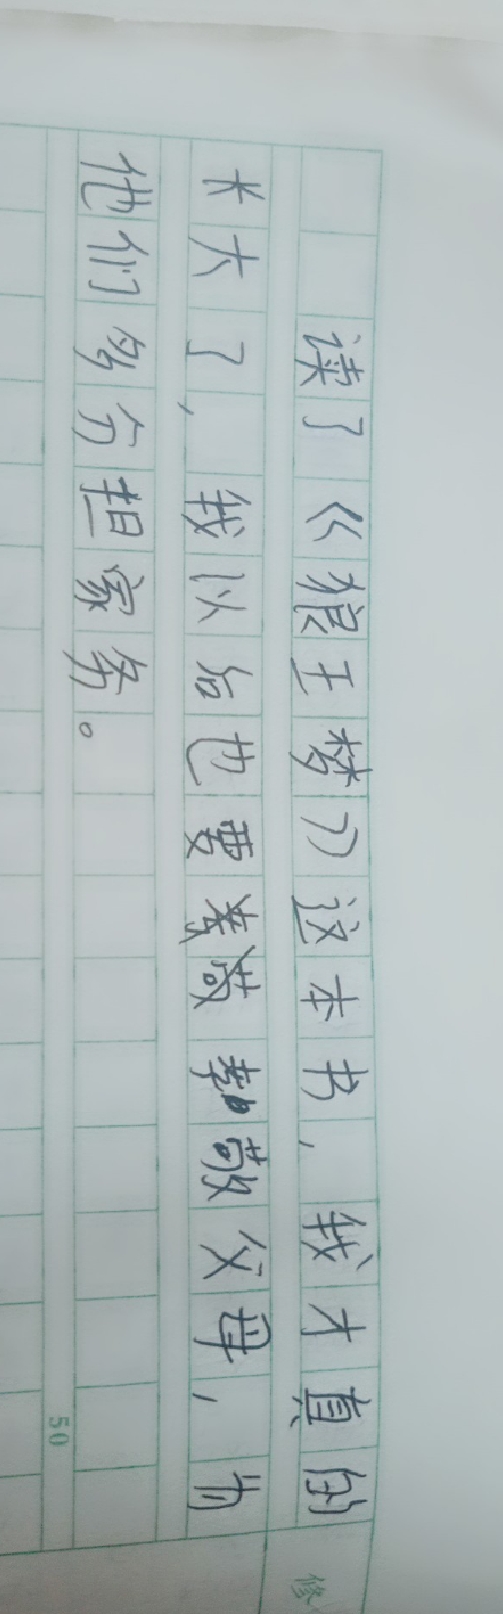 读了《狼王梦》这本书，我才真的
长大了，我以后也要孝敬父母，为
他们多分担家务。
50
修